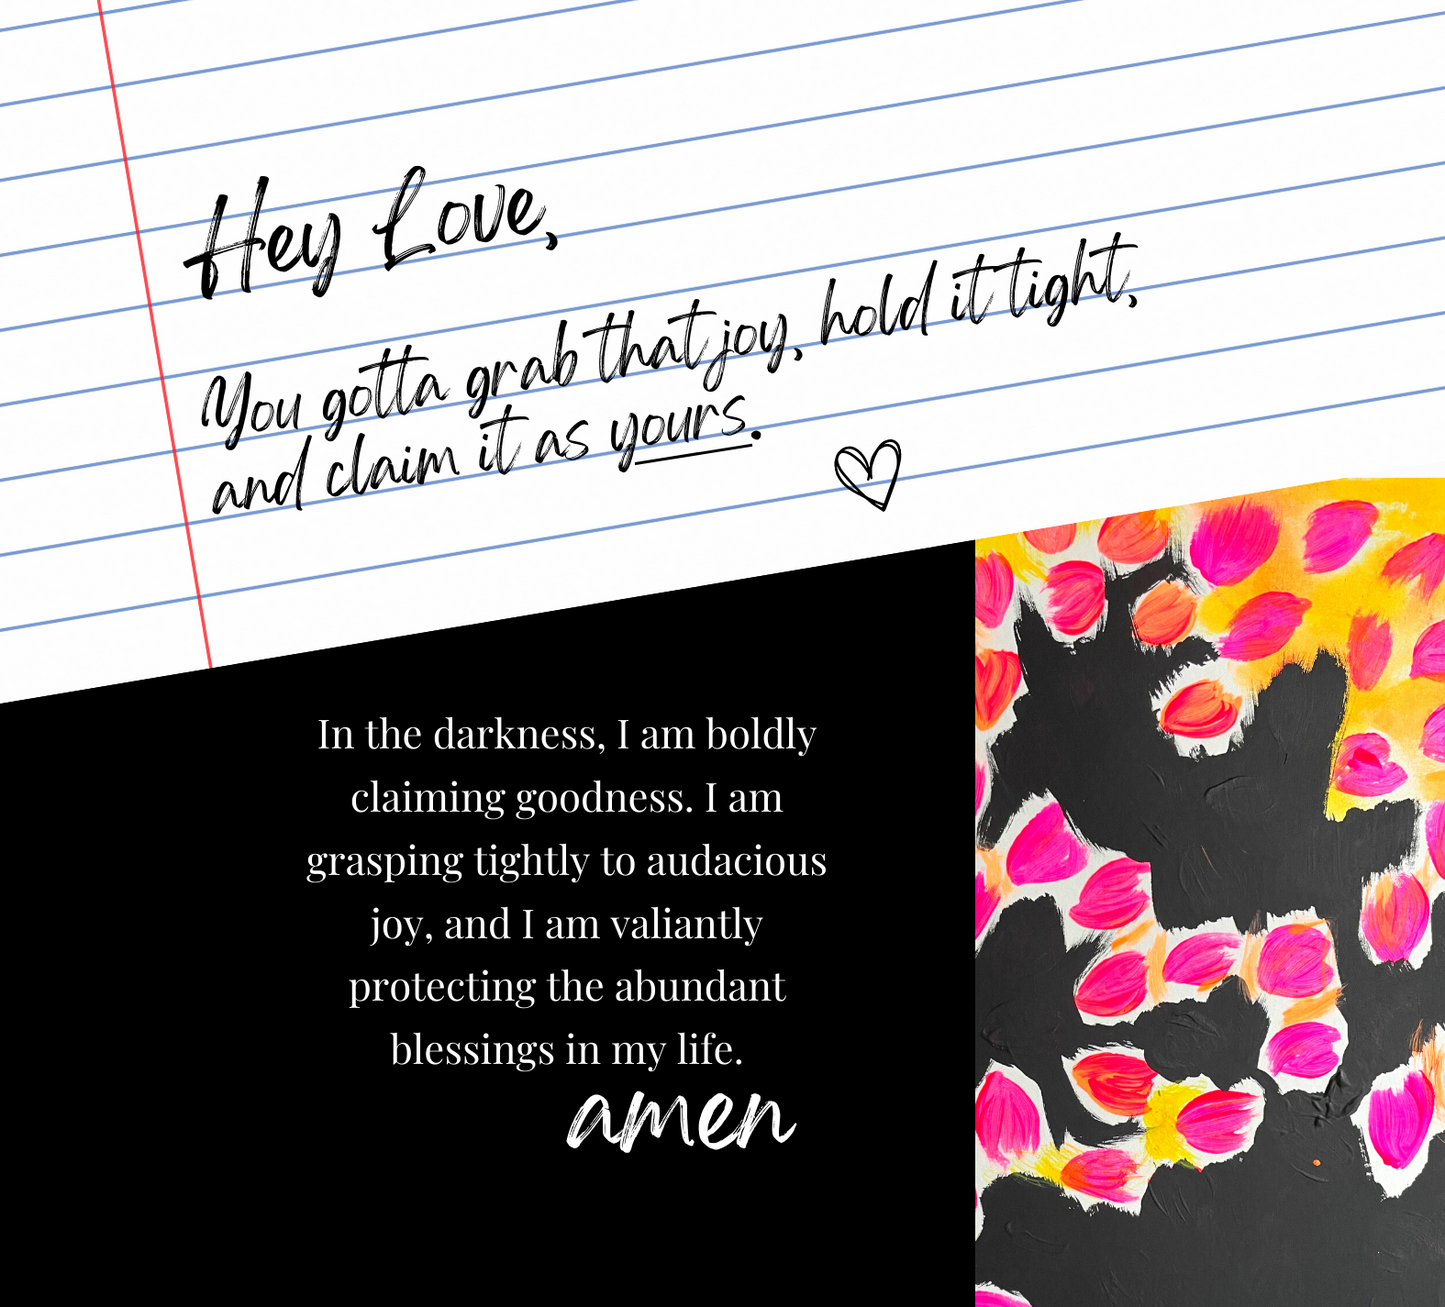 Hey Love,
You gotta grab that joy, hold it tight,
and claim it as yours.
In the darkness, I am boldly
claiming goodness. I am
grasping tightly to audacious
joy, and I am valiantly
protecting the abundant
blessings in my life.
amen